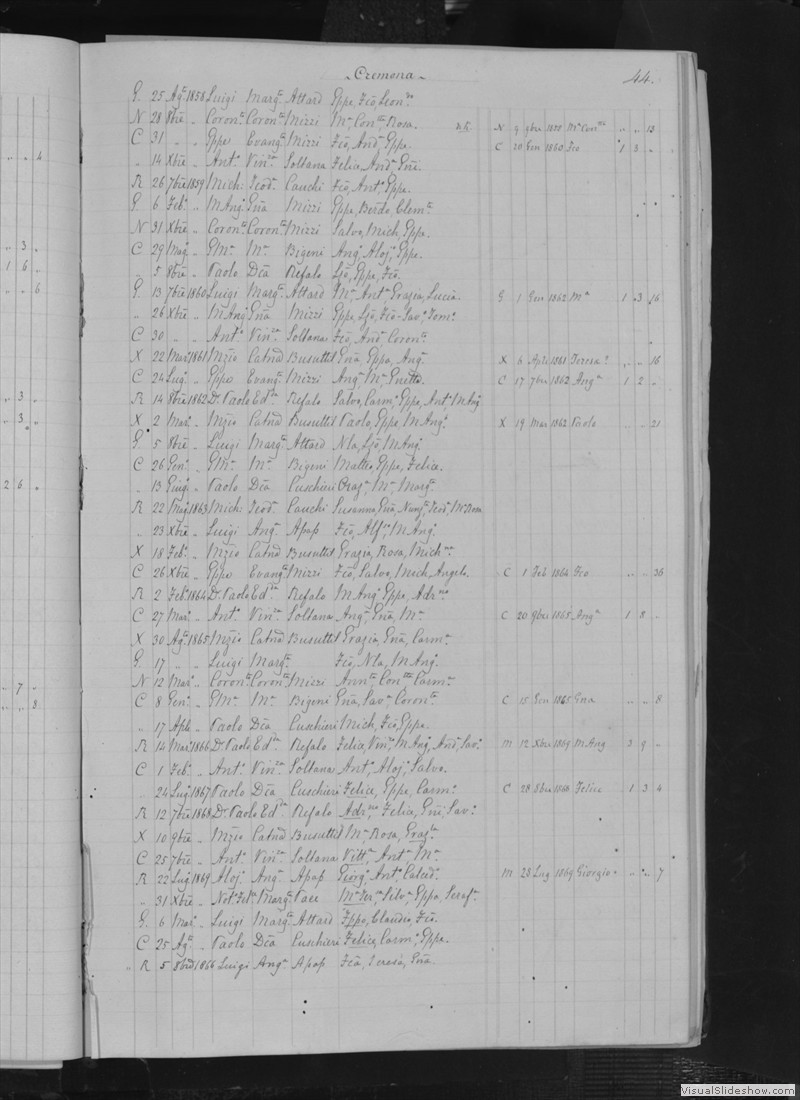 Cremona
44.
G. 25 Agᵗ. 1858 Luigi Margᵗᵃ Attard Gppe, Fcõ, Leonᵈᵒ
N 28 8bre " Coronᵗᵒ Coronᵗᵃ Mizzi Mᵃ Conᵗᵃ, Rosa. N 9 9bre Mᵃ Conᵗᵃ " " 13
C 31 " " Gppe Evangᵗᵃ Mizzi Fcõ, Andᵃ, Gppe. C 20 Gen 1860 Fco 1 3 "
" 14 Xbre " Antᵒ Vinᶻᵃ Soltana Felic, Andᵃ, Gña.
R 26 7bre 1859 Mich Teodᵃ Cauchi Fcõ, Antᵒ, Gppe.
G. 6 Febᵒ " MAngᵒ Gña Mizzi Gppe, Berdo, Clemᵗᵉ
N 31 Xbre " Coronᵗᵒ Coronᵗᵃ Mizzi Salvᵒ, Mich, Gppe.
C 29 Magᵒ " GMᵃ Mᵃ Bigeni Angᵒ, Alojᵒ, Gppe.
" 5 8bre " Paolo Dẽa Refalo Ljõ, Gppe, Fcõ.
G. 13 7bre 1860 Luigi Margᵗᵃ Attard Mᵃ, Antᵃ, Grazia, Lucia. G 1 Gen 1862 Mᵃ 1 3 16
" 26 Xbre " MAngᵒ Gña Mizzi Gppe, Ljõ, Fcõ-Savᵒ, Tomᵒ
C 30 " " Antᵒ Vinᶻᵃ Soltana Fcõ, Andᵃ, Coronᵗᵒ
X 22 Marᵒ 1861 Nzio Catñã Busuttil Gña, Gppa, Angᵃ X 6 Aple 1861 Teresa? " " 16
C 24 Lugᵒ " Gppe Evangᵗᵃ Mizzi Angᵃ, Mᵃ C 17 7bre 1862 Angᵃ 1 2 "
R 14 8bre 1862 Dʳ Paolo Edᵃ Refalo Salvᵒ, Carmᵒ, Gppe, Antᵒ, MAngᵒ
X 2 Marᵒ " Nzio Catñã Busuttil Paolo, Gppe, MAngᵒ X 19 Mar 1862 Paolo " " 21
G. 5 8bre " Luigi Margᵗᵃ Attard Nla, Ljõ, MAngᵒ
C 26 Genᵒ " GMᵃ Mᵃ Bigeni Matteo, Gppe, Felice.
" 13 Giugᵒ " Paolo Dẽa Cuschieri Grazᵃ, Mᵃ, Margᵗᵃ
R 22 Magᵒ 1863 Mich Teodᵃ Cauchi Susanna, Gña, Teodᵃ, Mᵃ Rosa
" 23 Xbre " Luigi Angᵃ Apap Fcõ, Alfᵒ, MAngᵒ
X 18 Febᵒ " Nzio Catñã Busuttil Grazia, Rosa, Michⁿᵃ
C 26 Xbre " Gppe Evangᵗᵃ Mizzi Fcõ, Salvᵒ, Mich, Angelo. C 1 Feb 1864 Fco " " 36
R 2 Febᵒ 1864 Dʳ Paolo Edᵃ Refalo MAngᵒ, Gppe, Adrⁿᵒ
C 27 Marᵒ " Antᵒ Vinᶻᵃ Soltana Angᵃ, Gña, Mᵃ C 20 9bre 1865 Angᵃ 1 8 "
X 30 Agᵗ 1865 Nzio Catñã Busuttil Grazia, Gña, Carmᵃ
G. 17 " " Luigi Margᵗᵃ Fcõ, Nla, MAngᵒ
N 12 Marᵒ " Coronᵗᵒ Coronᵗᵃ Mizzi Annᵗᵃ, Conᵗᵃ, Carmᵃ
C 8 Genᵒ " GMᵃ Mᵃ Bigeni Gña, Savᵃ, Coronᵗᵃ C 15 Gen 1865 Gna " " 8
" 17 Aple " Paolo Dẽa Cuschieri Mich, Fcõ, Gppe.
R 14 Marᵒ 1866 Dʳ Paolo Edᵃ Refalo Felice, Vinᶻᵒ, MAngᵒ, Andᵃ, Savᵒ M 12 Xbre 1869 MAng 3 9 "
C 1 Febᵒ " Antᵒ Vinᶻᵃ Soltana Antᵒ, Alojᵒ, Salvᵒ.
" 24 Lugᵒ 1867 Paolo Dẽa Cuschieri Felice, Gppe, Carmᵒ C 28 8bre 1868 Felice 1 3 4
R 12 7bre 1868 Dʳ Paolo Edᵃ Refalo Adrⁿᵒ, Felice, Gñi, Savᵒ
X 10 9bre " Nzio Catñã Busuttil Mᵃ Rosa, Grazᵃ
C 25 7bre " Antᵒ Vinᶻᵃ Soltana Vittᵃ, Antᵃ, Mᵃ
R 22 Lugᵒ 1869 Alojᵒ Angᵃ Apap Giorgᵒ, Antᵒ, Calcedᵒ M 28 Lug 1869 Giorgio " " 7
" 31 Xbre " Notᵒ Felᵉ Margᵗᵃ Vace Mᵃ Terᵃ, Silvᵃ, Gppa, Serafᵃ
G. 6 Marᵒ " Luigi Margᵗᵃ Attard Gppe, Claudio, Fcõ.
C 25 Agᵗ " Paolo Dẽa Cuschieri Felice, Carmᵒ, Gppe.
" R 5 8bre 1866 Luigi Angᵃ Apap Fcã, Teresa, Gña.
3 "
4
1 6 "
" " 6
" 3 "
" 3 "
2 6 "
" 7 "
" " 8
VisualSlideshow.com